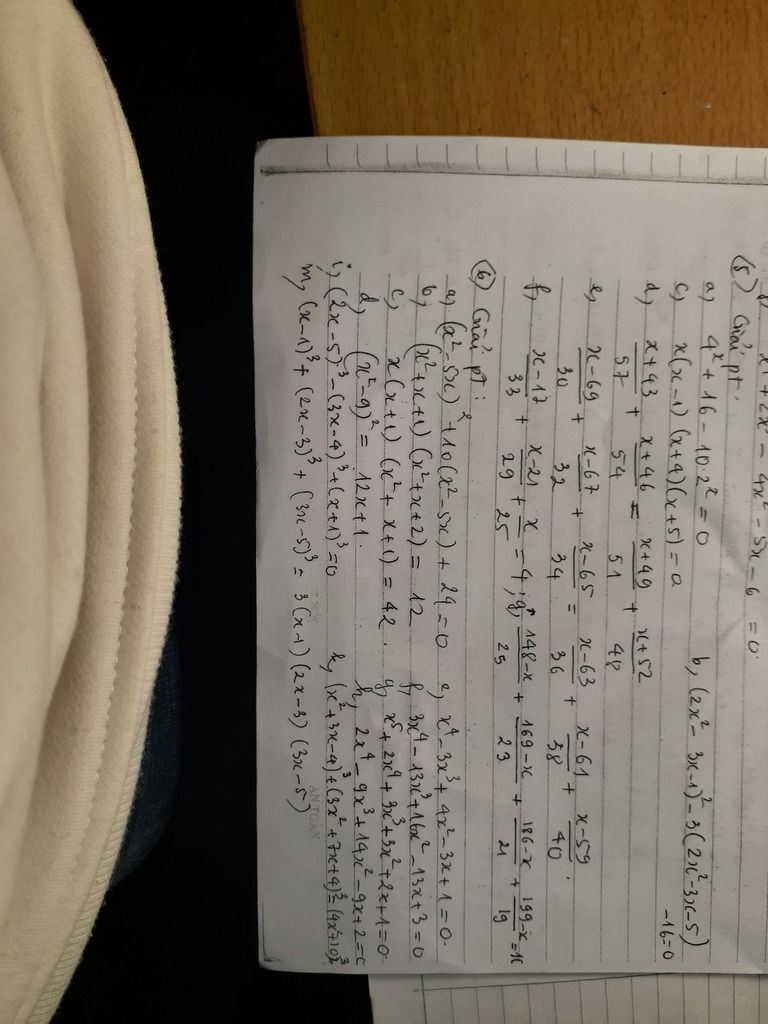 x⁴ + 2x³ - 4x² - 5x - 6 = 0
⑤ Giải pt.
a, 4ˣ + 16 - 10.2ˣ = 0 b, (2x² - 3x - 1)² - 3(2x² - 3x - 5) - 16 = 0
c, x(x-1)(x+4)(x+5) = a
d, x+43/57 + x+46/54 = x+49/51 + x+52/48
e, x-69/30 + x-67/32 + x-65/34 = x-63/36 + x-61/38 + x-59/40.
f, x-17/33 + x-21/29 + x/25 = 4; g, 148-x/25 + 169-x/23 + 186-x/21 + 199-x/19 = 10
⑥ Giải pt:
a, (x² - 5x)² + 10(x² - 5x) + 24 = 0 e, x⁴ - 3x³ + 4x² - 3x + 1 = 0.
b, (x² + x + 1)(x² + x + 2) = 12 f, 3x⁴ - 13x³ + 16x² - 13x + 3 = 0
c, x(x+1)(x² + x + 1) = 42. g, x⁵ + 2x⁴ + 3x³ + 3x² + 2x + 1 = 0.
d, (x² - 9)² = 12x + 1. h, 2x⁴ - 9x³ + 14x² - 9x + 2 = 0
i, (2x-5)³ - (3x-4)³ + (x+1)³ = 0 k, (x² + 3x - 4)³ + (3x² + 7x + 4)³ =
m, (x-1)³ + (2x-3)³ + (3x-5)³ = 3(x-1)(2x-3)(3x-5)